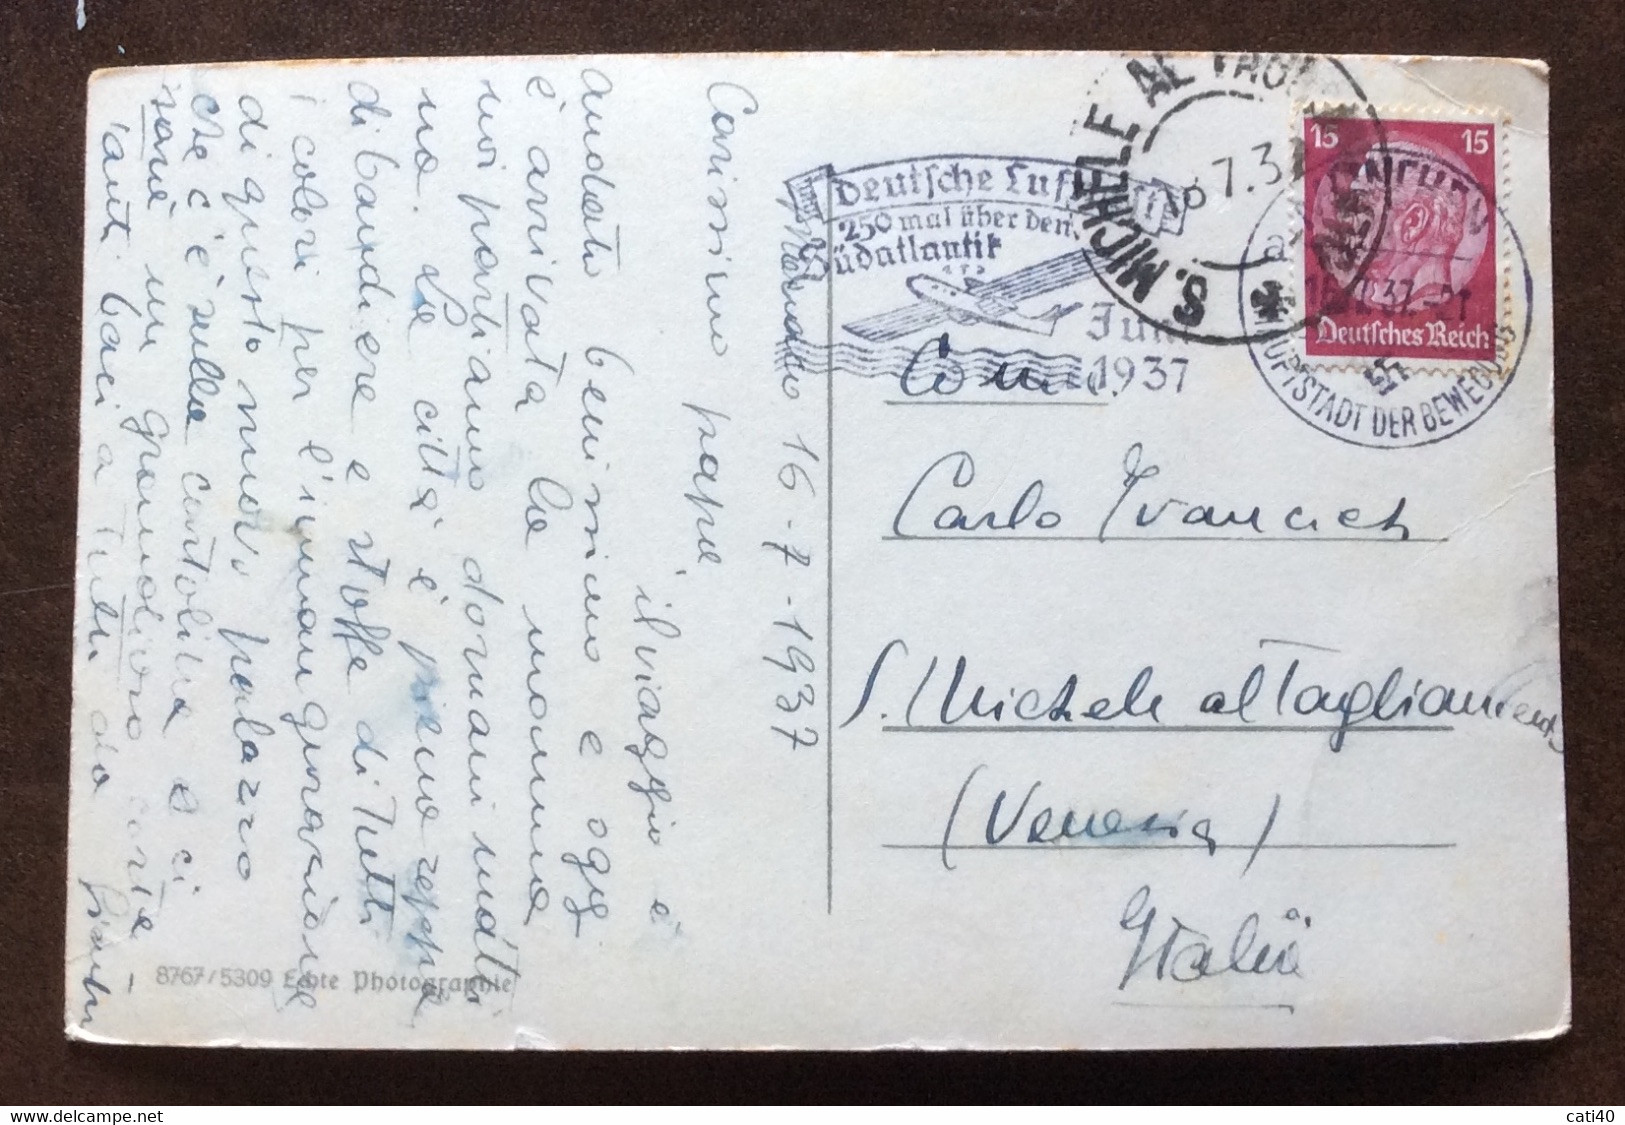 Monaco 16-7-1937
Carissimo papà,
il viaggio è
andato benissimo e oggi
è arrivata la mamma
noi partiamo domani matti
na. La città è piena zeppa
di bandiere e stoffe di tutti
i colori per l'inaugurazione
di questo nuovo palazzo
che c'è sulla cartolina e ci
sarà un grandioso corteo
Tanti baci a tutti da
8767/5309 Echte Photographie
Deutsche Luft
250 mal über den
Südatlantik
Juni
1937
S. MICHELE AL TAGLIAM
7.37
MÜNCHEN
HAUPTSTADT DER BEWEGUNG
15 15
Deutsches Reich
Com.
Carlo Ivancich
S. Michele al Tagliamento
(Venezia)
Italia
cati40